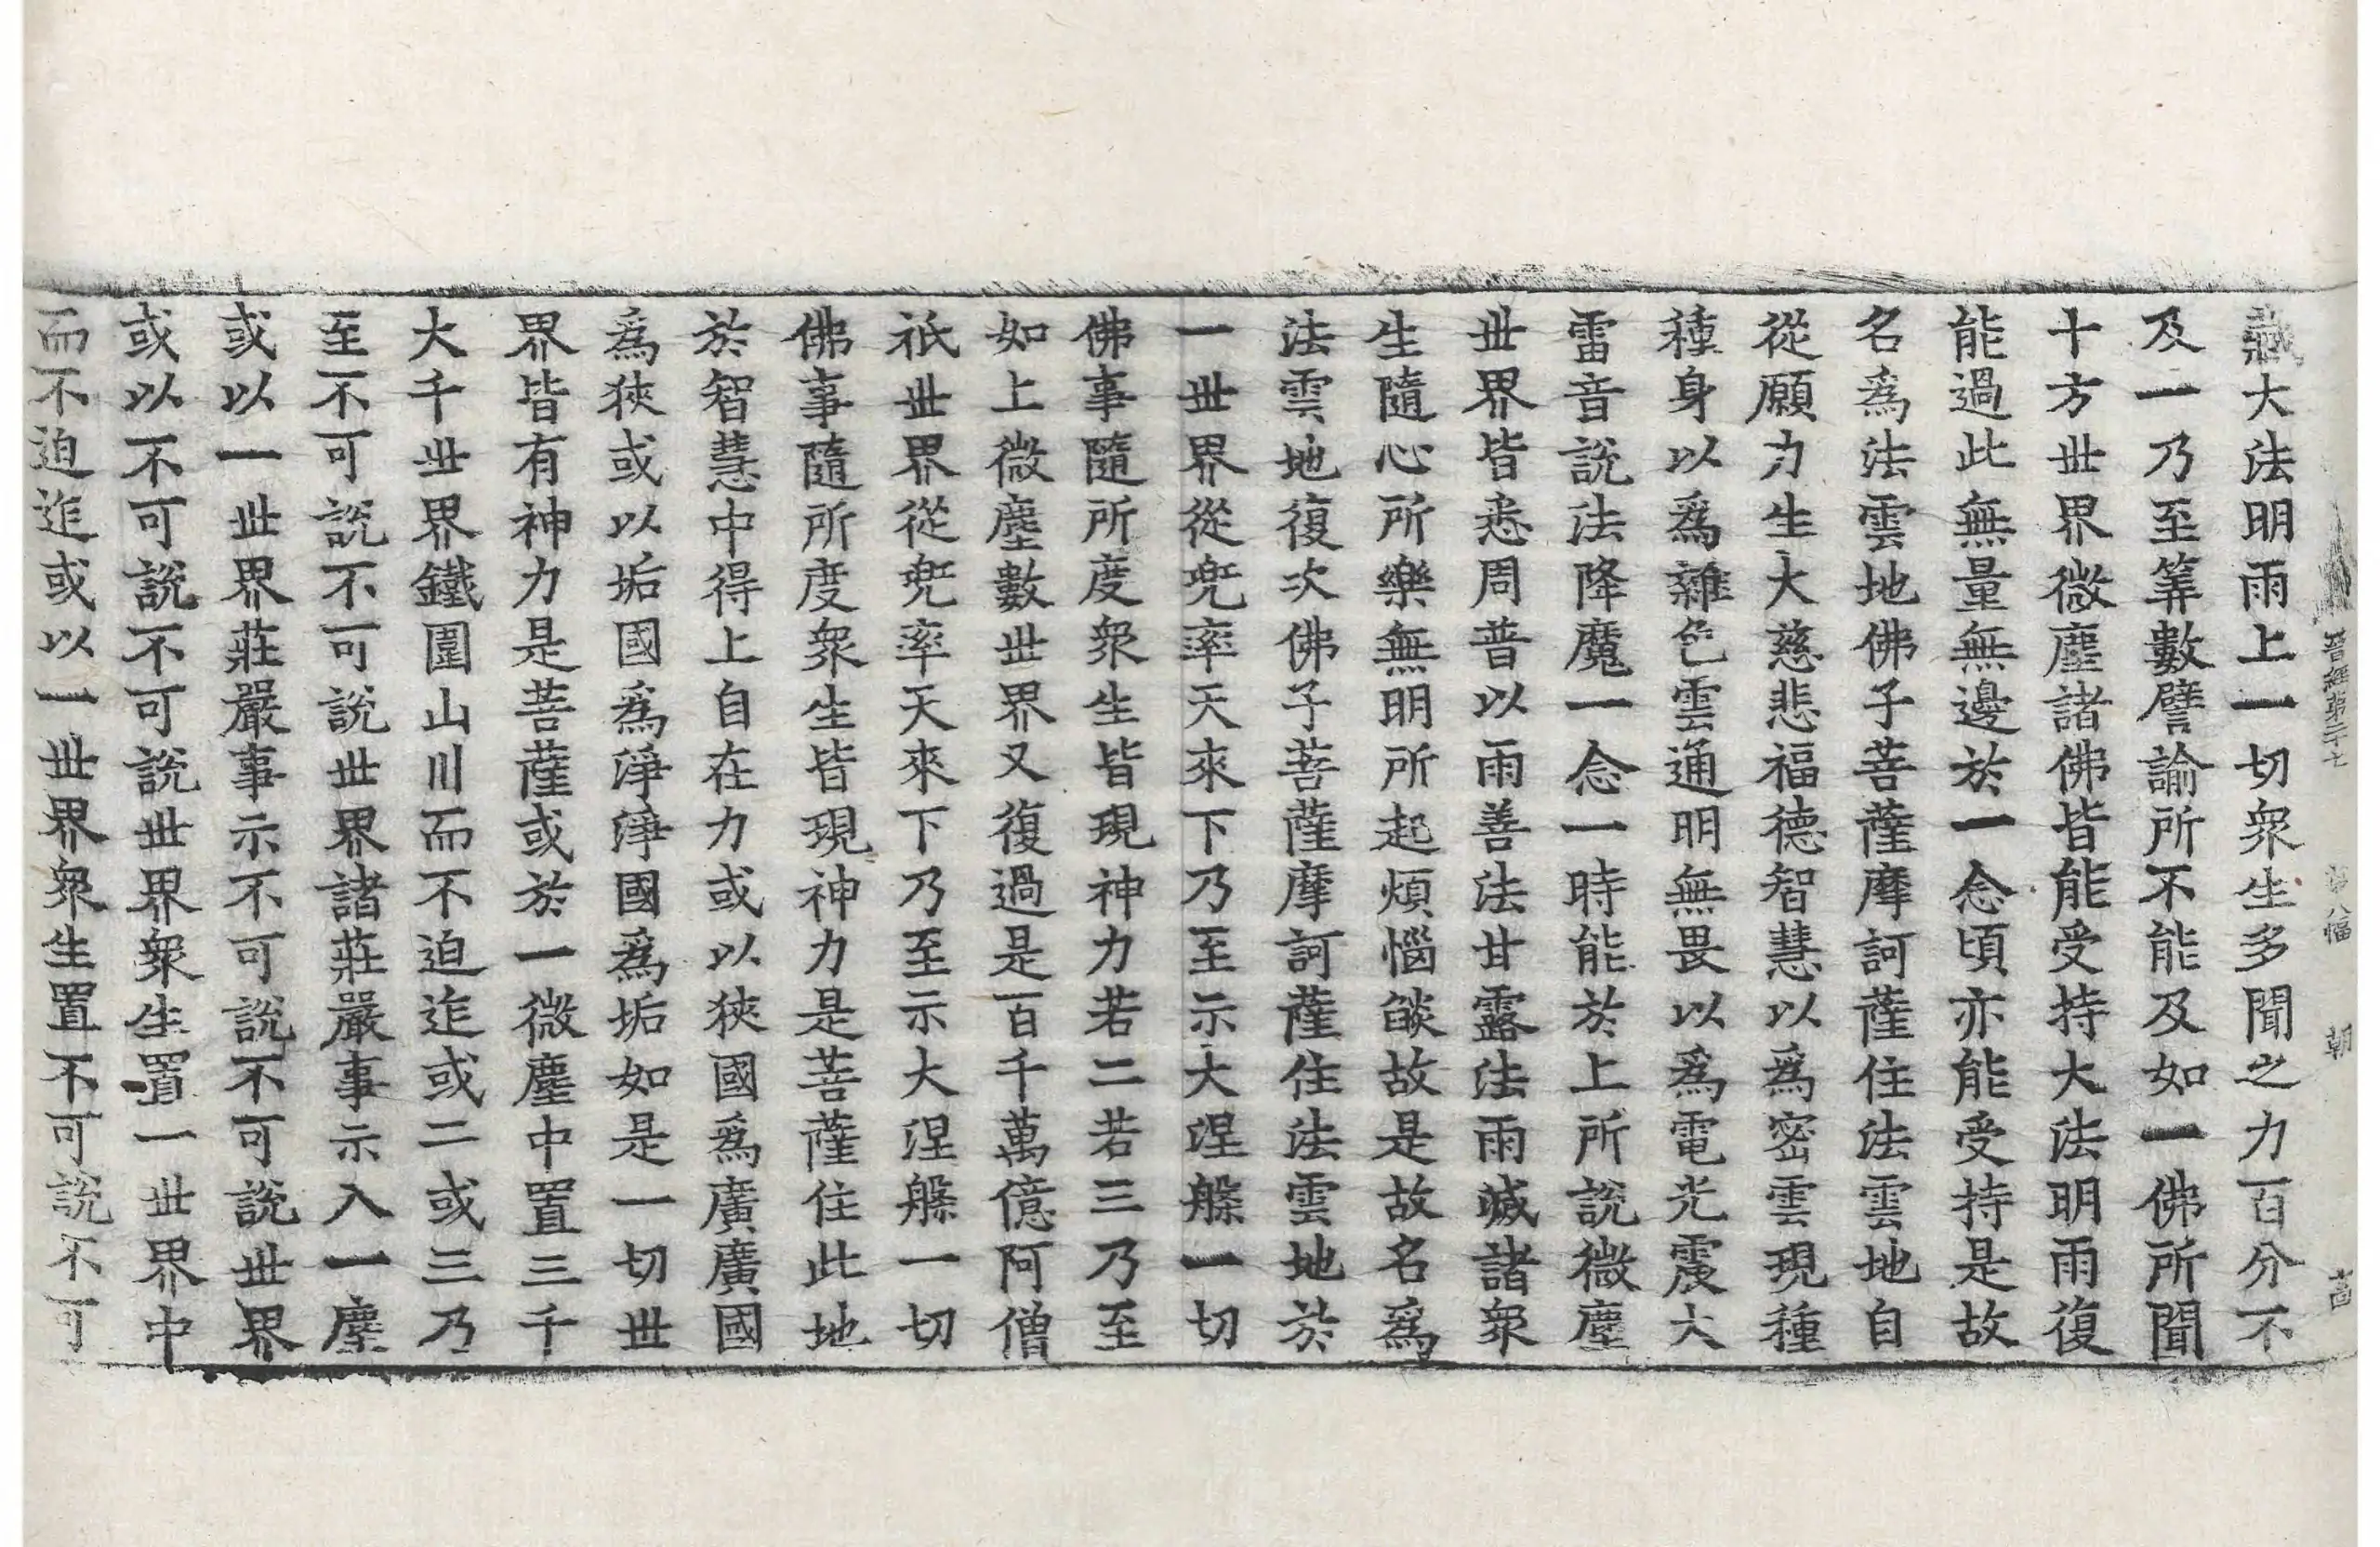 晉經第二十七 第八幅 朝
藏大法明雨上一切衆生多聞之力百分不
及一乃至筭數譬諭所不能及如一佛所聞
十方世界微塵諸佛皆能受持大法明雨復
能過此無量無邊於一念頃亦能受持是故
名爲法雲地佛子菩薩摩訶薩住法雲地自
從願力生大慈悲福德智慧以爲密雲現種
種身以爲雜色雲通明無畏以爲電光震大
雷音說法降魔一念一時能於上所說微塵
世界皆悉周普以雨善法甘露法雨滅諸衆
生隨心所樂無明所起煩惱燄故是故名爲
法雲地復次佛子菩薩摩訶薩住法雲地於
一世界從兜率天來下乃至示大涅槃一切
佛事隨所度衆生皆現神力若二若三乃至
如上微塵數世界又復過是百千萬億阿僧
祇世界從兜率天來下乃至示大涅槃一切
佛事隨所度衆生皆現神力是菩薩住此地
於智慧中得上自在力或以狹國爲廣廣國
爲狹或以垢國爲淨淨國爲垢如是一切世
界皆有神力是菩薩或於一微塵中置三千
大千世界鐵圍山川而不迫迮或二或三乃
至不可說不可說世界諸莊嚴事示入一塵
或以一世界莊嚴事示不可說不可說世界
或以不可說不可說世界衆生置一世界中
而不迫迮或以一世界衆生置不可說不可